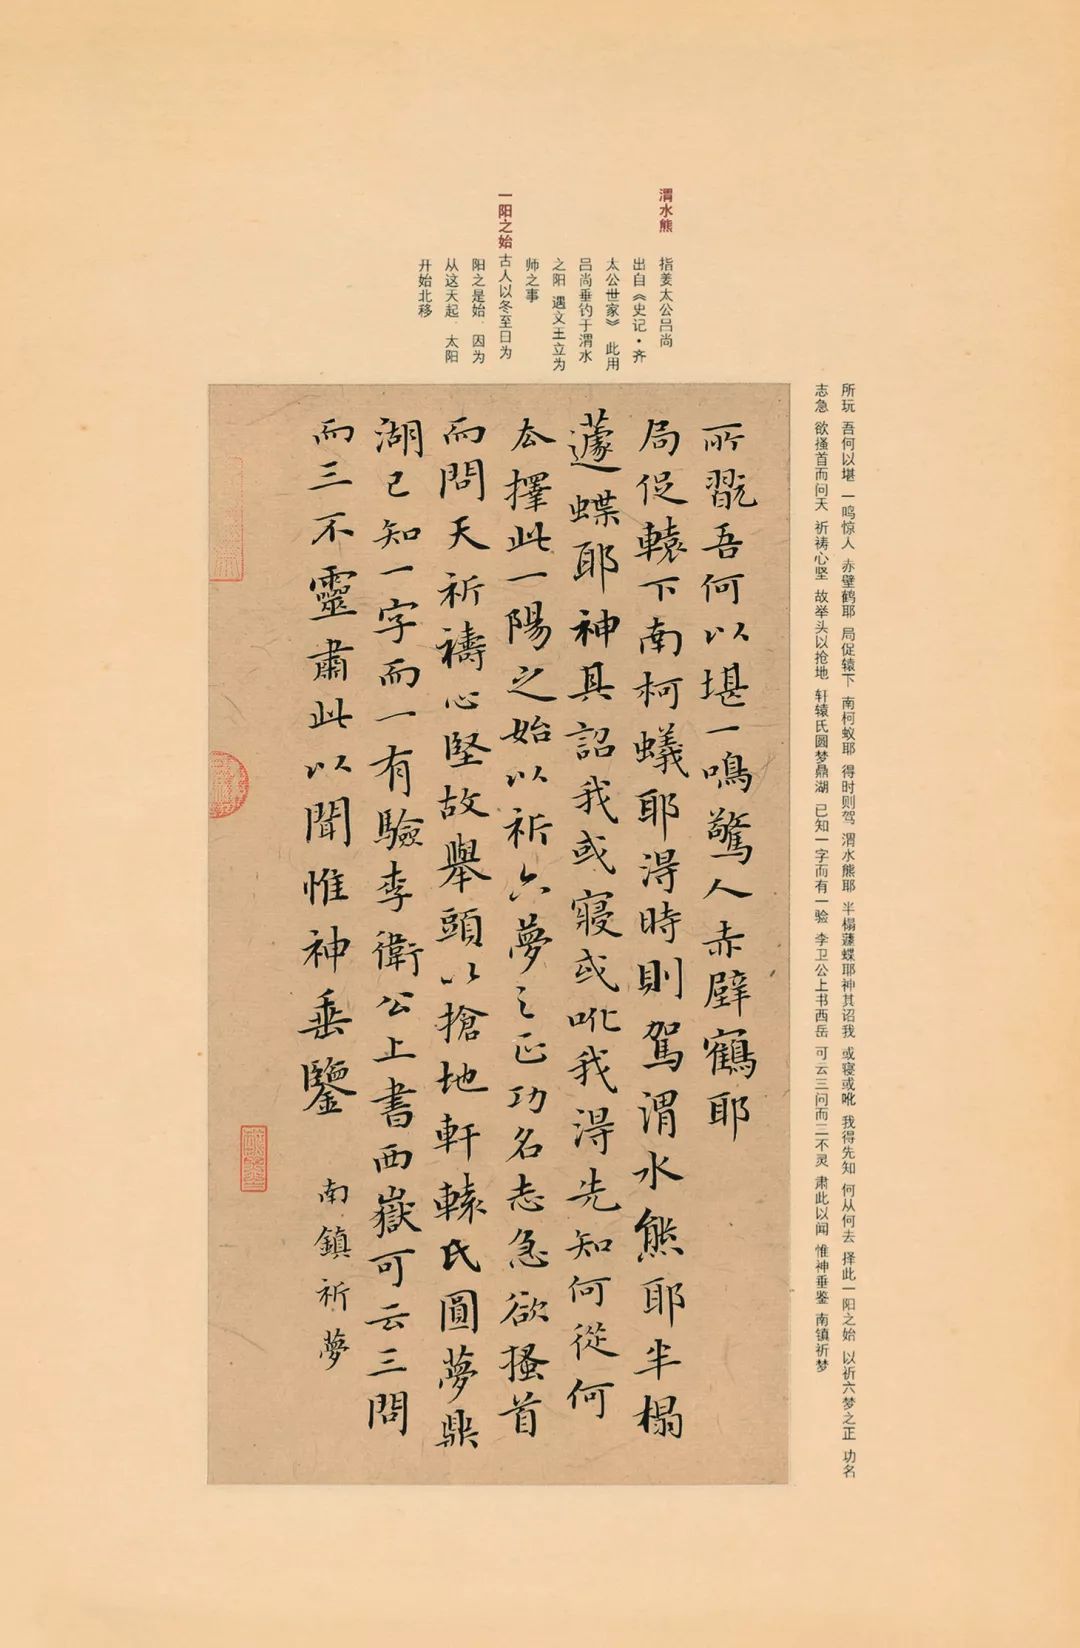 渭水熊
指姜太公吕尚
出自《史记·齐
太公世家》 此用
吕尚垂钓于渭水
之阳 遇文王立为
师之事
一阳之始
古人以冬至日为
阳之是始. 因为
从这天起. 太阳
开始北移
所玩 吾何以堪 一鸣惊人 赤壁鹤耶 局促辕下 南柯蚁耶 得时则驾 渭水熊耶 半榻蘧蝶耶神其诏我 或寝或吪 我得先知 何从何去 择此一阳之始 以祈六梦之正 功名
志急 欲搔首而问天 祈祷心坚 故举头以抢地 轩辕氏圆梦鼎湖 已知一字而有一验 李卫公上书西岳 可云三问而三不灵 肃此以闻 惟神垂鉴 南镇祈梦
所翫吾何以堪一鳴驚人赤壁鶴耶
局促轅下南柯蟻耶得時則駕渭水熊耶半榻
蘧蝶耶神其詔我或寢或吪我得先知何從何
去擇此一陽之始以祈六夢之正功名志急欲搔首
而問天祈禱心堅故舉頭以搶地軒轅氏圓夢鼎
湖已知一字而一有驗李衛公上書西嶽可云三問
而三不靈肅此以聞惟神垂鑒 南鎮祈夢